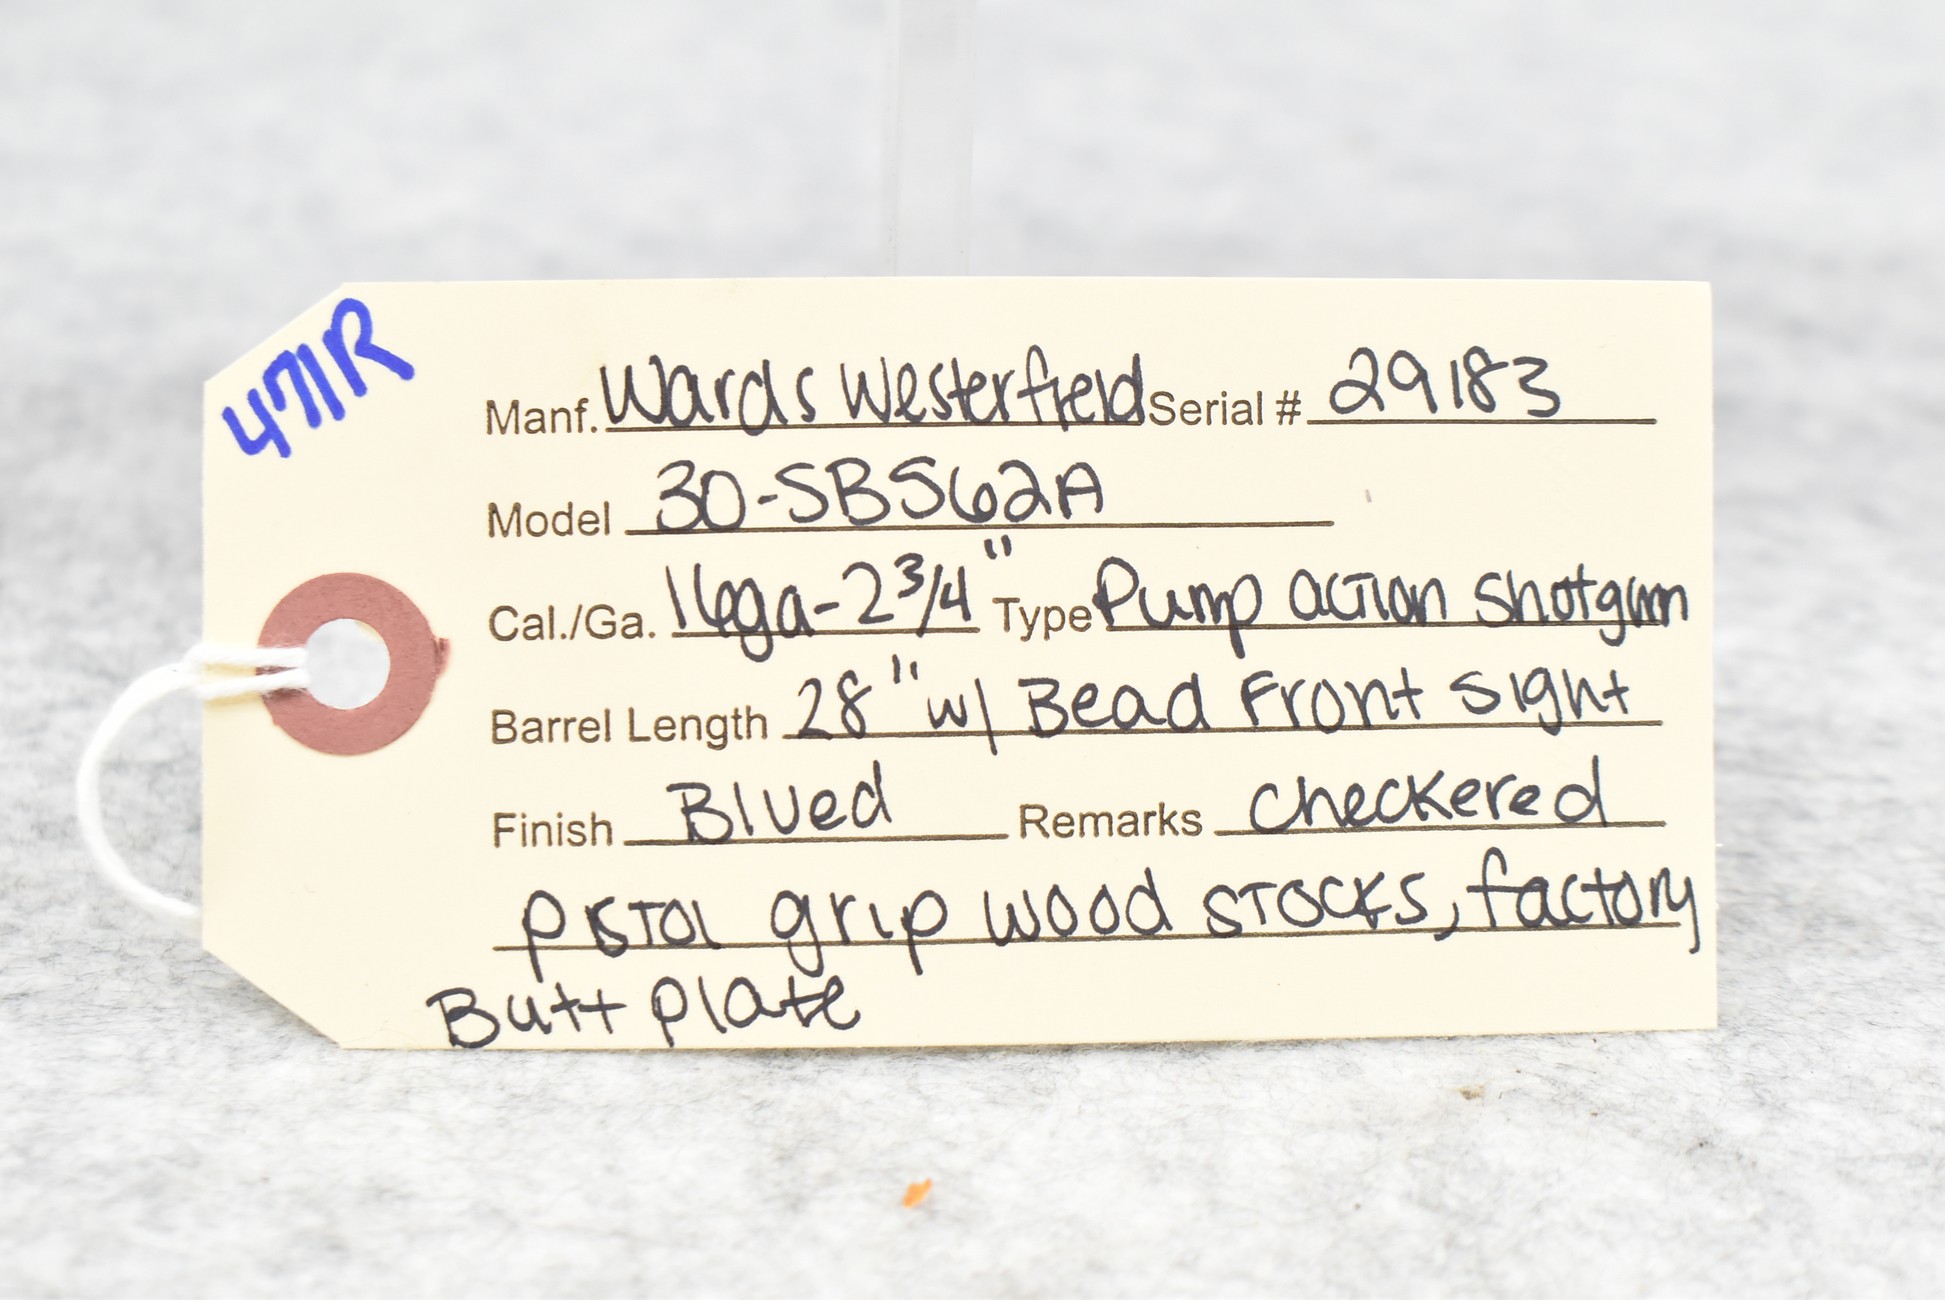 471R
Manf. Wards Westerfield Serial # 29183
Model 30-SB562A
Cal./Ga. 16ga-2 3/4" Type Pump action shotgun
Barrel Length 28" w/ Bead Front sight
Finish Blued Remarks checkered
pistol grip wood stocks, factory
Butt plate